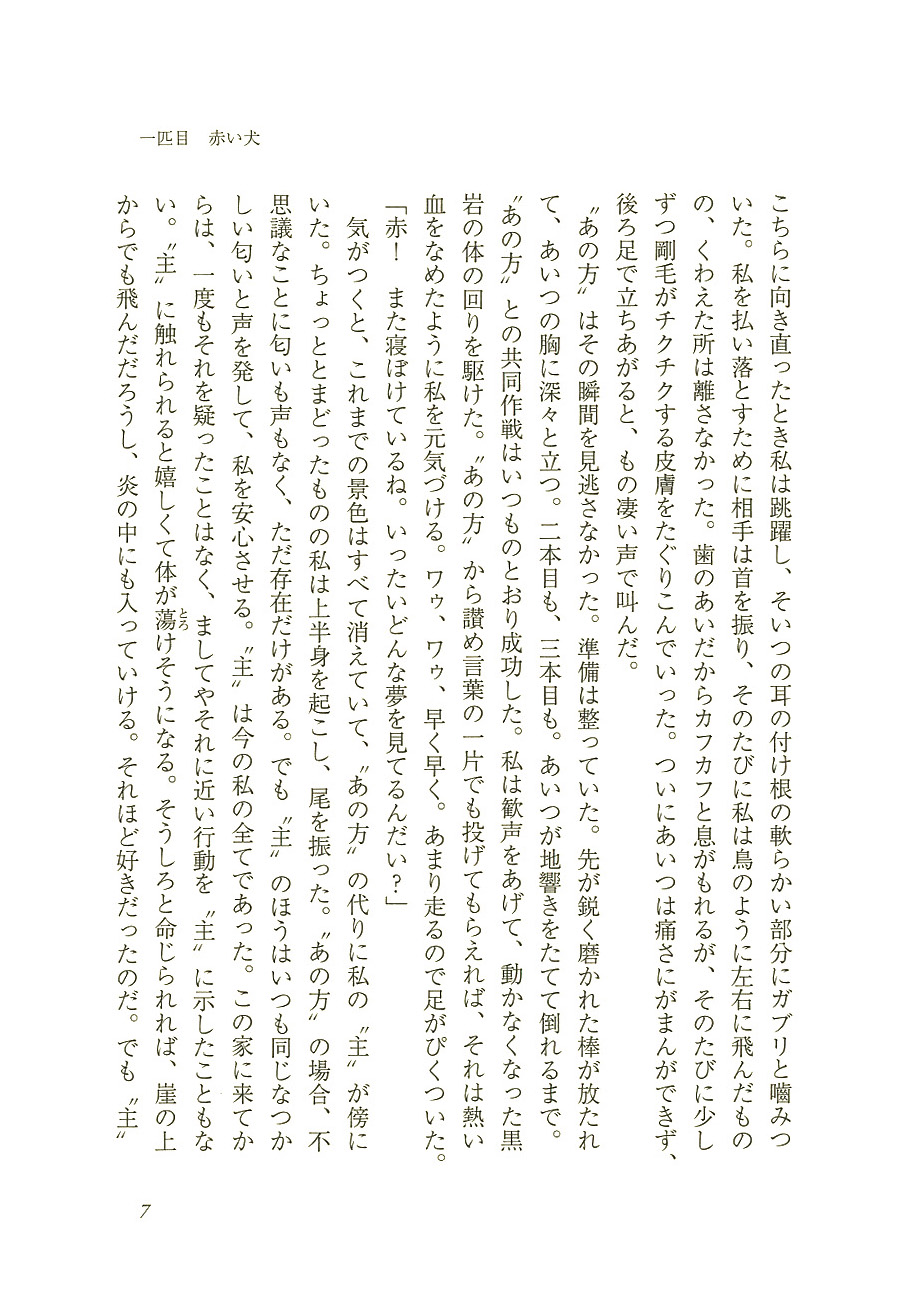 一匹目　赤い犬
こちらに向き直ったとき私は跳躍し、そいつの耳の付け根の軟らかい部分にガブリと嚙みつ
いた。私を払い落とすために相手は首を振り、そのたびに私は鳥のように左右に飛んだもの
の、くわえた所は離さなかった。歯のあいだからカフカフと息がもれるが、そのたびに少し
ずつ剛毛がチクチクする皮膚をたぐりこんでいった。ついにあいつは痛さにがまんができず、
後ろ足で立ちあがると、もの凄い声で叫んだ。
　〝あの方〟はその瞬間を見逃さなかった。準備は整っていた。先が鋭く磨かれた棒が放たれ
て、あいつの胸に深々と立つ。二本目も、三本目も。あいつが地響きをたてて倒れるまで。
〝あの方〟との共同作戦はいつものとおり成功した。私は歓声をあげて、動かなくなった黒
岩の体の回りを駆けた。〝あの方〟から讃め言葉の一片でも投げてもらえれば、それは熱い
血をなめたように私を元気づける。ワゥ、ワゥ、早く早く。あまり走るので足がぴくついた。
「赤！　また寝ぼけているね。いったいどんな夢を見てるんだい？」
　気がつくと、これまでの景色はすべて消えていて、〝あの方〟の代りに私の〝主〟が傍に
いた。ちょっととまどったものの私は上半身を起こし、尾を振った。〝あの方〟の場合、不
思議なことに匂いも声もなく、ただ存在だけがある。でも〝主〟のほうはいつも同じなつか
しい匂いと声を発して、私を安心させる。〝主〟は今の私の全てであった。この家に来てか
らは、一度もそれを疑ったことはなく、ましてやそれに近い行動を〝主〟に示したこともな
い。〝主〟に触れられると嬉しくて体が蕩とろけそうになる。そうしろと命じられれば、崖の上
からでも飛んだだろうし、炎の中にも入っていける。それほど好きだったのだ。でも〝主〟
7